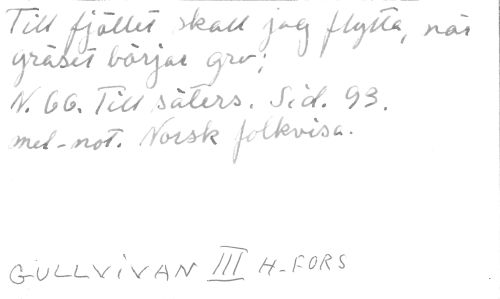 Till fjället skall jag flytta, när
gräset börjar gro;
N. 66. Till säters. Sid. 93.
mel-not. Norsk folkvisa.
GULLVIVAN III H-FORS